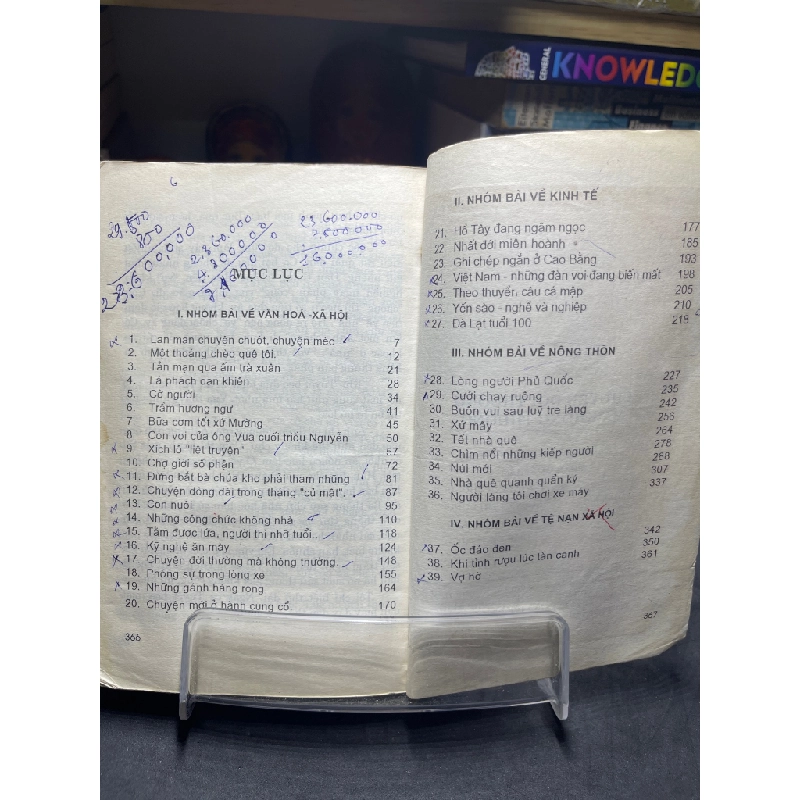 GENERAL
KNOWLEDG
Business
6
MỤC LỤC
I. NHÓM BÀI VỀ VĂN HOÁ -XÃ HỘI
1. Lan man chuyện chuột, chuyện mèo 7
2. Một thoáng chèo quê tôi. 12
3. Tản mạn qua ấm trà xuân 21
4. Lá phách đàn khiển 28
5. Cờ người 34
6. Trầm hương ngư 41
7 Bữa cơm tối xứ Mường 45
8 Con voi của ông Vua cuối triều Nguyễn 50
9 Xích lô "liệt truyện" 57
10. Chợ giới số phận 72
11. Đừng bắt bà chúa kho phải tham nhũng 81
12. Chuyện dông dài trong tháng "củ mật". 87
13. Con nuôi 95
14. Những công chức không nhà 110
15. Tằm được lứa, người thì nhỡ tuổi... 118
16. Kỹ nghệ ăn mày 124
17. Chuyện đời thường mà không thường. 148
18. Phóng sự trong lòng xe 155
19. Những gánh hàng rong 164
20. Chuyện mới ở hành cung cổ 170
366
II. NHÓM BÀI VỀ KINH TẾ
21. Hồ Tây đang ngậm ngọc 177
22 Nhất dời miên hoành 185
23 Ghi chép ngắn ở Cao Bằng 193
24. Việt Nam - những đàn voi đang biến mất 198
25. Theo thuyền câu cá mập 205
26. Yến sào - nghề và nghiệp 210
27. Đà Lạt tuổi 100 218
III. NHÓM BÀI VỀ NÔNG THÔN
28. Lòng người Phú Quốc 227
29. Cưới chạy ruộng 235
30. Buồn vui sau luỹ tre làng 242
31. Xứ mây 256
32. Tết nhà quê 264
33. Chìm nổi những kiếp người 278
34. Núi mới 288
35. Nhà quê quanh quẩn ký 307
36. Người làng tôi chơi xe máy 337
IV. NHÓM BÀI VỀ TỆ NẠN XÃ HỘI
37. Ốc đảo đen 342
38. Khi tỉnh rượu lúc tàn canh 350
39. Vợ hờ 361
367